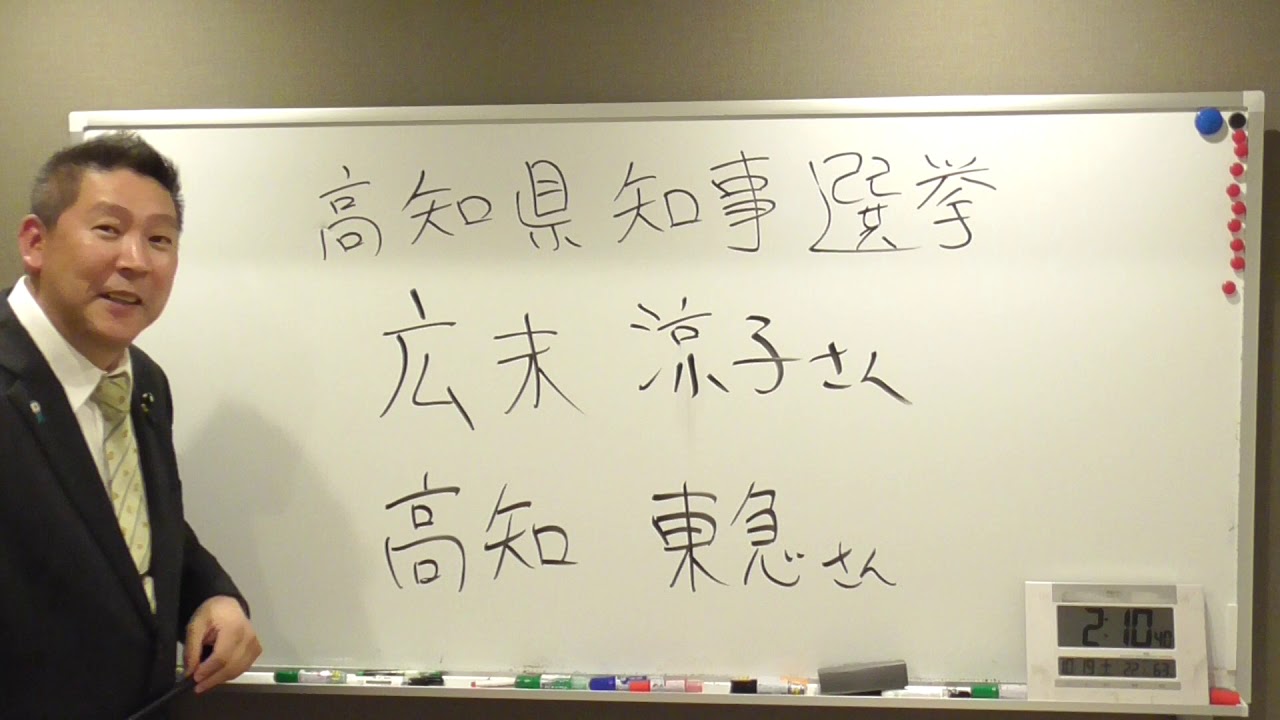 高知県知事選挙
広末 涼子さん
高知 東急さん
2:10 40
10 19 土 22 63